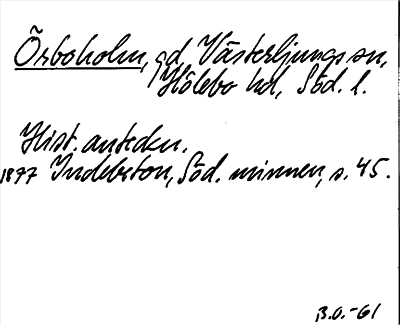 Örboholm, gd, Västerljungs sn,
Hölebo hd, Söd. l.
Hist. anteckn.
1877 Indebetou, Söd. minnen, s. 45.
B.O.-61